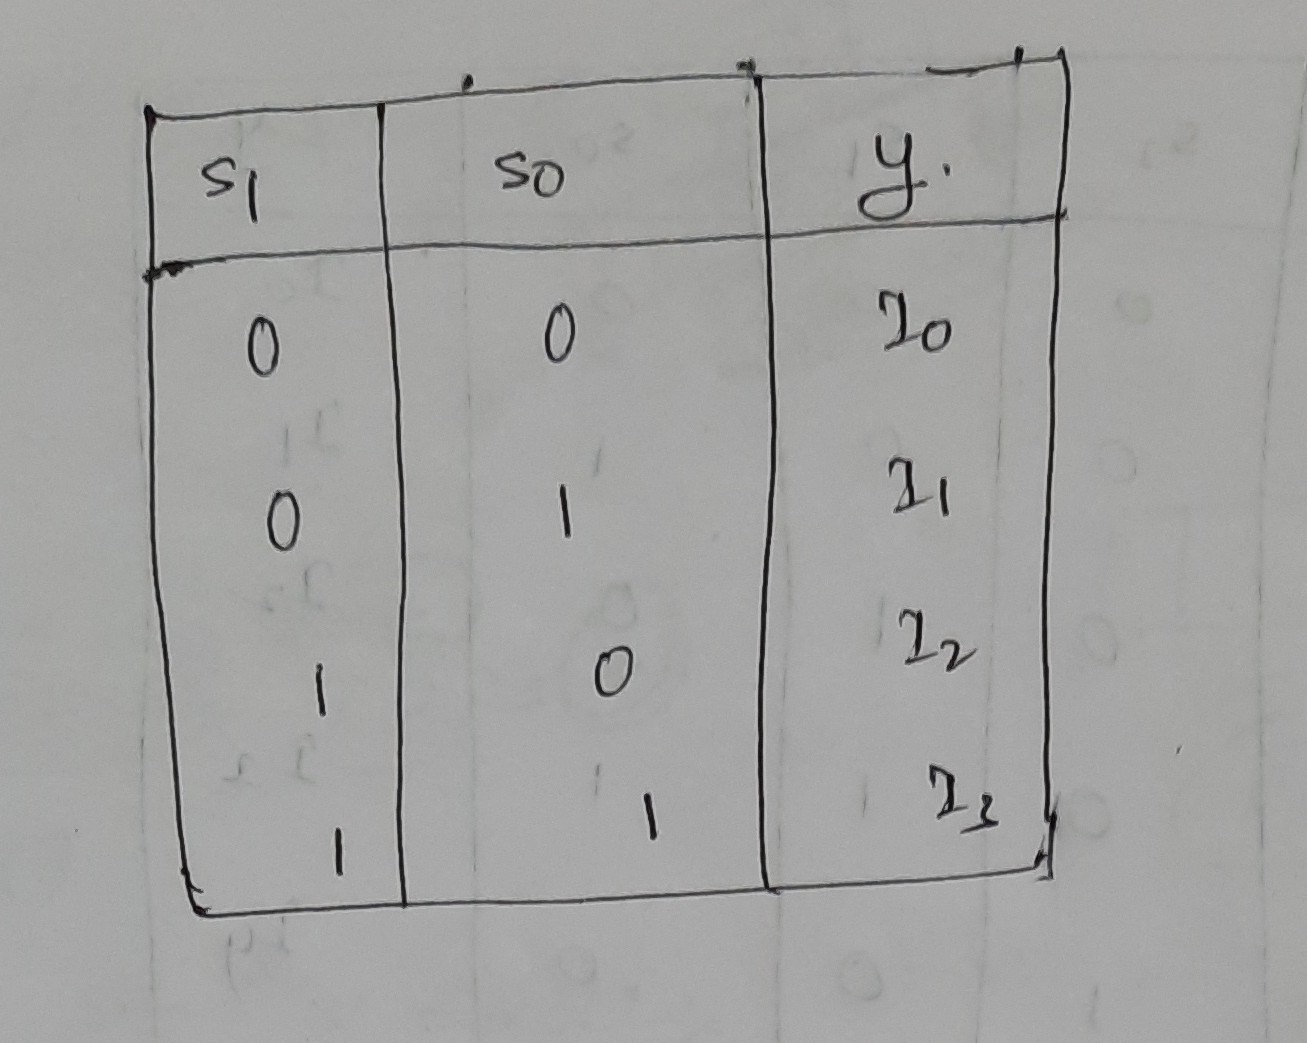 S1 S0 y.
0 0 I0
0 1 I1
1 0 I2
1 1 I3